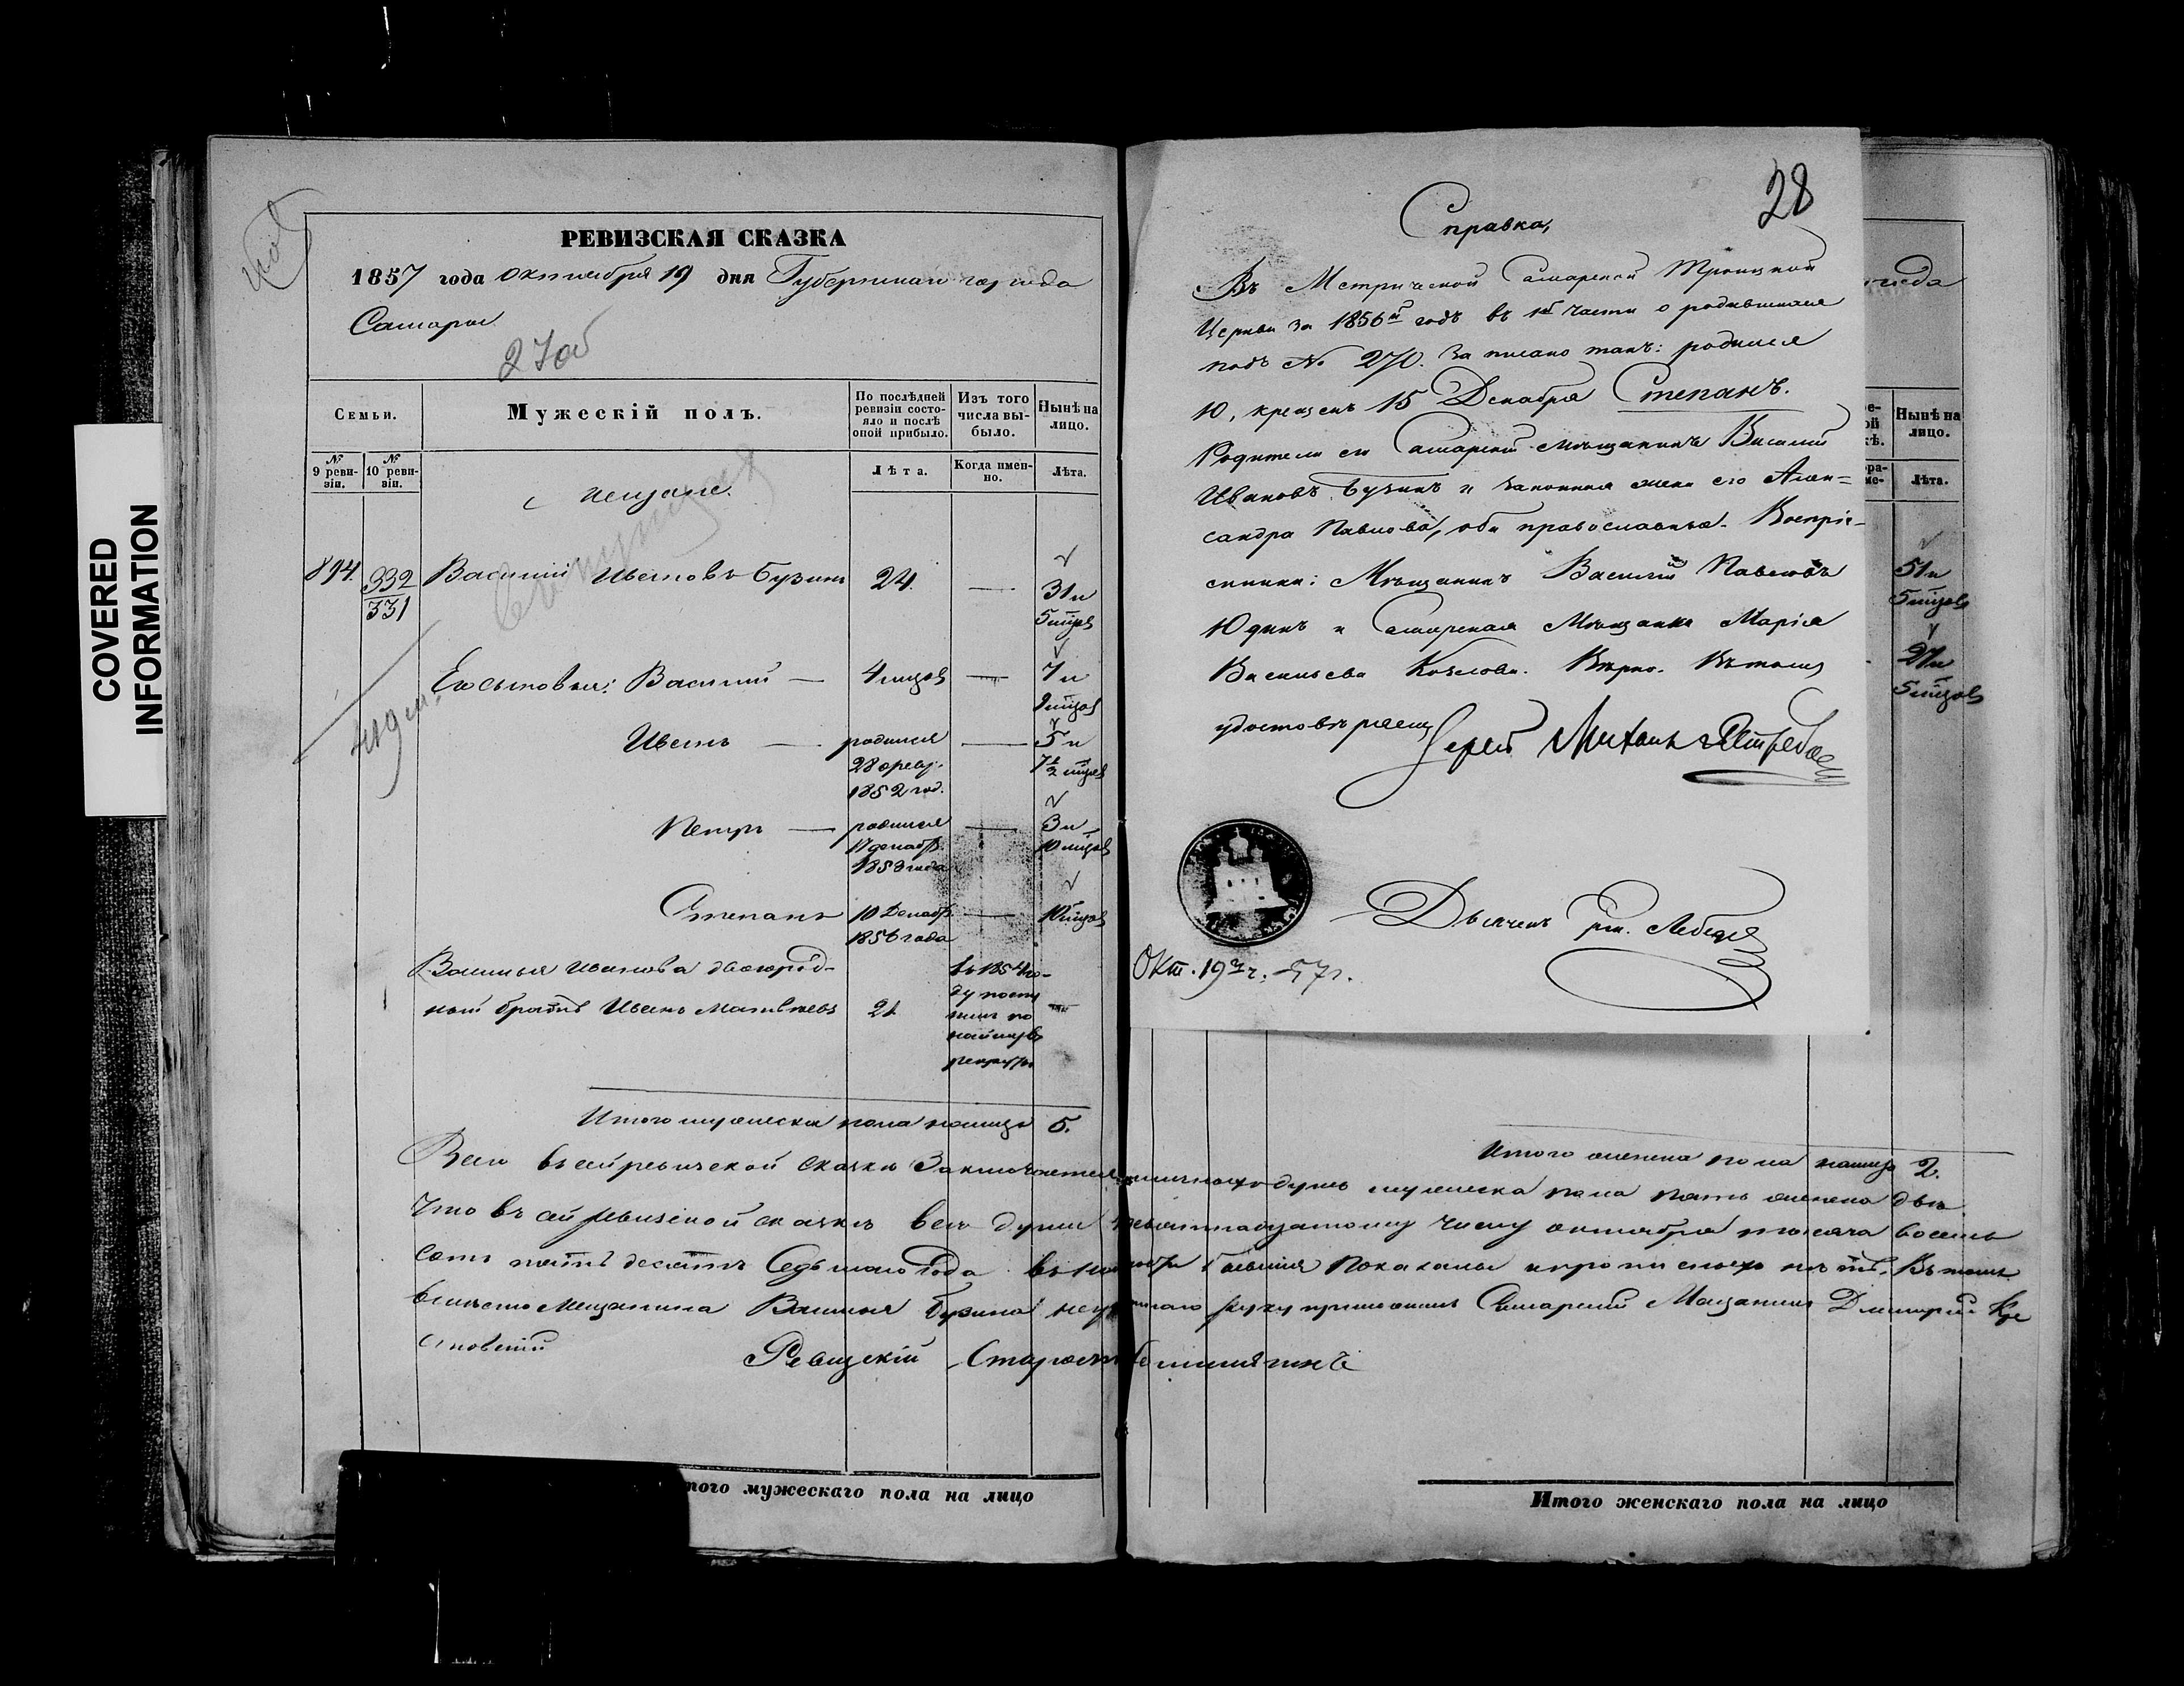 COVERED
INFORMATION
РЕВИЗСКАЯ СКАЗКА
1857 года Октября 19 дня Губернскаго города
Самары
27об
Семьи.
Мужескій полъ.
По послѣдней ревизіи состояло и послѣ оной прибыло.
Изъ того числа выбыло.
Нынѣ на лицо.
№ 9 ревизіи.
№ 10 ревизіи.
Лѣта.
Когда именно.
Лѣта.
мещане.
894. 332 Василий Ивановъ Бузинъ 24. — 31 и
331 5 мцов
Его сыновья: Василий — 4 мцов — 7 и
9 мцов
Иванъ — родился — 5 и
28 февр. 7½ мцов
1852 год.
Петръ — родился — 3 и
17 декабр. 10 мцов
1853 года
Степанъ 10 Декабр. — 10 мцов
1856 года
Василья Иванова двоюрод-
ный братъ Иванъ Матвѣевъ 21 —
въ 1854 го-
ду посту
пилъ по
найму въ
рекруты
Итого мужеска пола налицо 5.
Итого женска пола налицо 2.
Всего въ сей ревизской сказкѣ заключается наличныхъ душъ мужеска пола пять женска двѣ.
Что въ сей ревизской сказкѣ всѣ души девятнадцатому числу октября тысяча восемь
сотъ пятьдесятъ седьмаго года показаны и прописныхъ нѣтъ. Въ томъ
вмѣсто мещанина Василья Бузина руку приложилъ Самарский Мещанинъ Дмитрий
Ревизский Староста
того мужескаго пола на лицо
Итого женскаго пола на лицо
28
Справка,
Въ Метрической Самарской Троицкой
Церкви за 1856й годъ въ 1й части о родившихся
подъ № 270. Записано такъ: родился
10, крещенъ 15 Декабря Степанъ.
Родители его Самарский мѣщанинъ Василий
Ивановъ Бузинъ и законная жена его Алек=
сандра Павлова, оба православные. Воспріе-
мники: Мѣщанинъ Василий Павловъ
Юдинъ и Самарская Мѣщанка Марія
Васильева Козлова. Вѣрно. Въ томъ
удостовѣряемъ Іерей Михаилъ
Дьячекъ Лебедев
Окт. 19 57 г.
Нынѣ на лицо.
Лѣта.
51 и
5 мцов
27 и
5 мцов